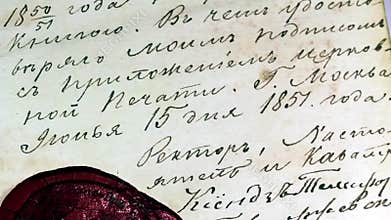 18 50/51 года
Книгою. Въ чемъ удосто
вѣряю моимъ подписом
съ приложеніемъ церков
ной Печати. Г. Москва
Іюнья 15 дня 1851. года.
Ректоръ, Насто
ятель и Кавал
Ксёндзъ